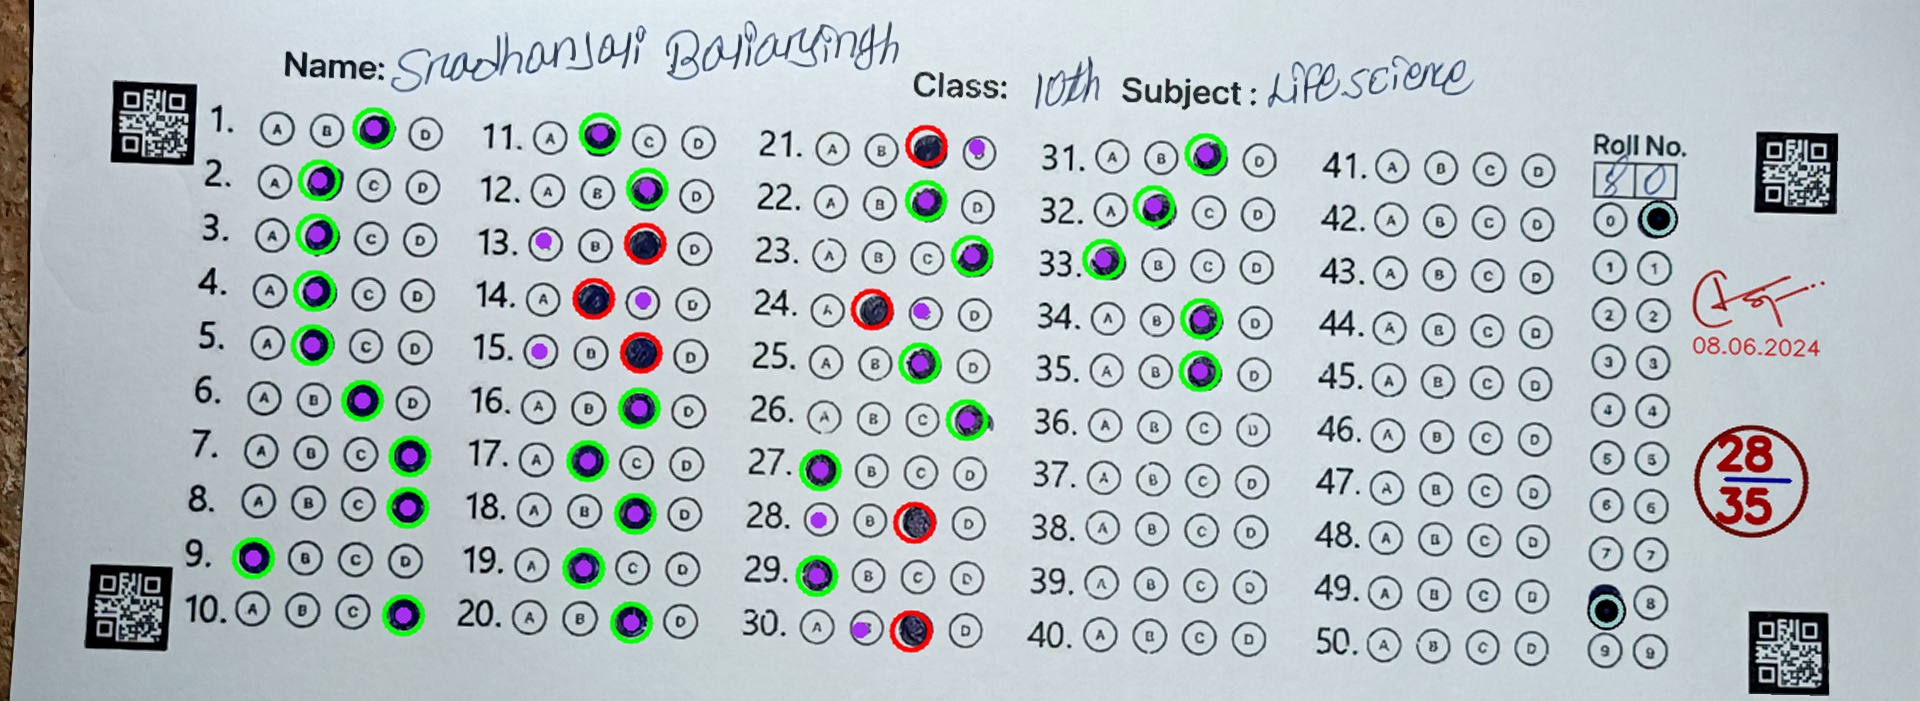 Name: Sradhanjali Baliarsingh
Class: 10th Subject : Life science
1. A B D
2. A C D
3. A C D
4. A C D
5. A C D
6. A B D
7. A B C
8. A B C
9. B C D
10. A B C
11. A C D
12. A B D
13. B D
14. A D
15. B D
16. A B D
17. A C D
18. A B D
19. A C D
20. A B D
21. A B
22. A B D
23. A B C
24. A D
25. A B D
26. A B C
27. B C D
28. B D
29. B C D
30. A D
31. A B D
32. A C D
33. B C D
34. A B D
35. A B D
36. A B C D
37. A B C D
38. A B C D
39. A B C D
40. A B C D
41. A B C D
42. A B C D
43. A B C D
44. A B C D
45. A B C D
46. A B C D
47. A B C D
48. A B C D
49. A B C D
50. A B C D
Roll No.
80
0
1 1
2 2
3 3
4 4
5 5
6 6
7 7
8
9 9
08.06.2024
28
35